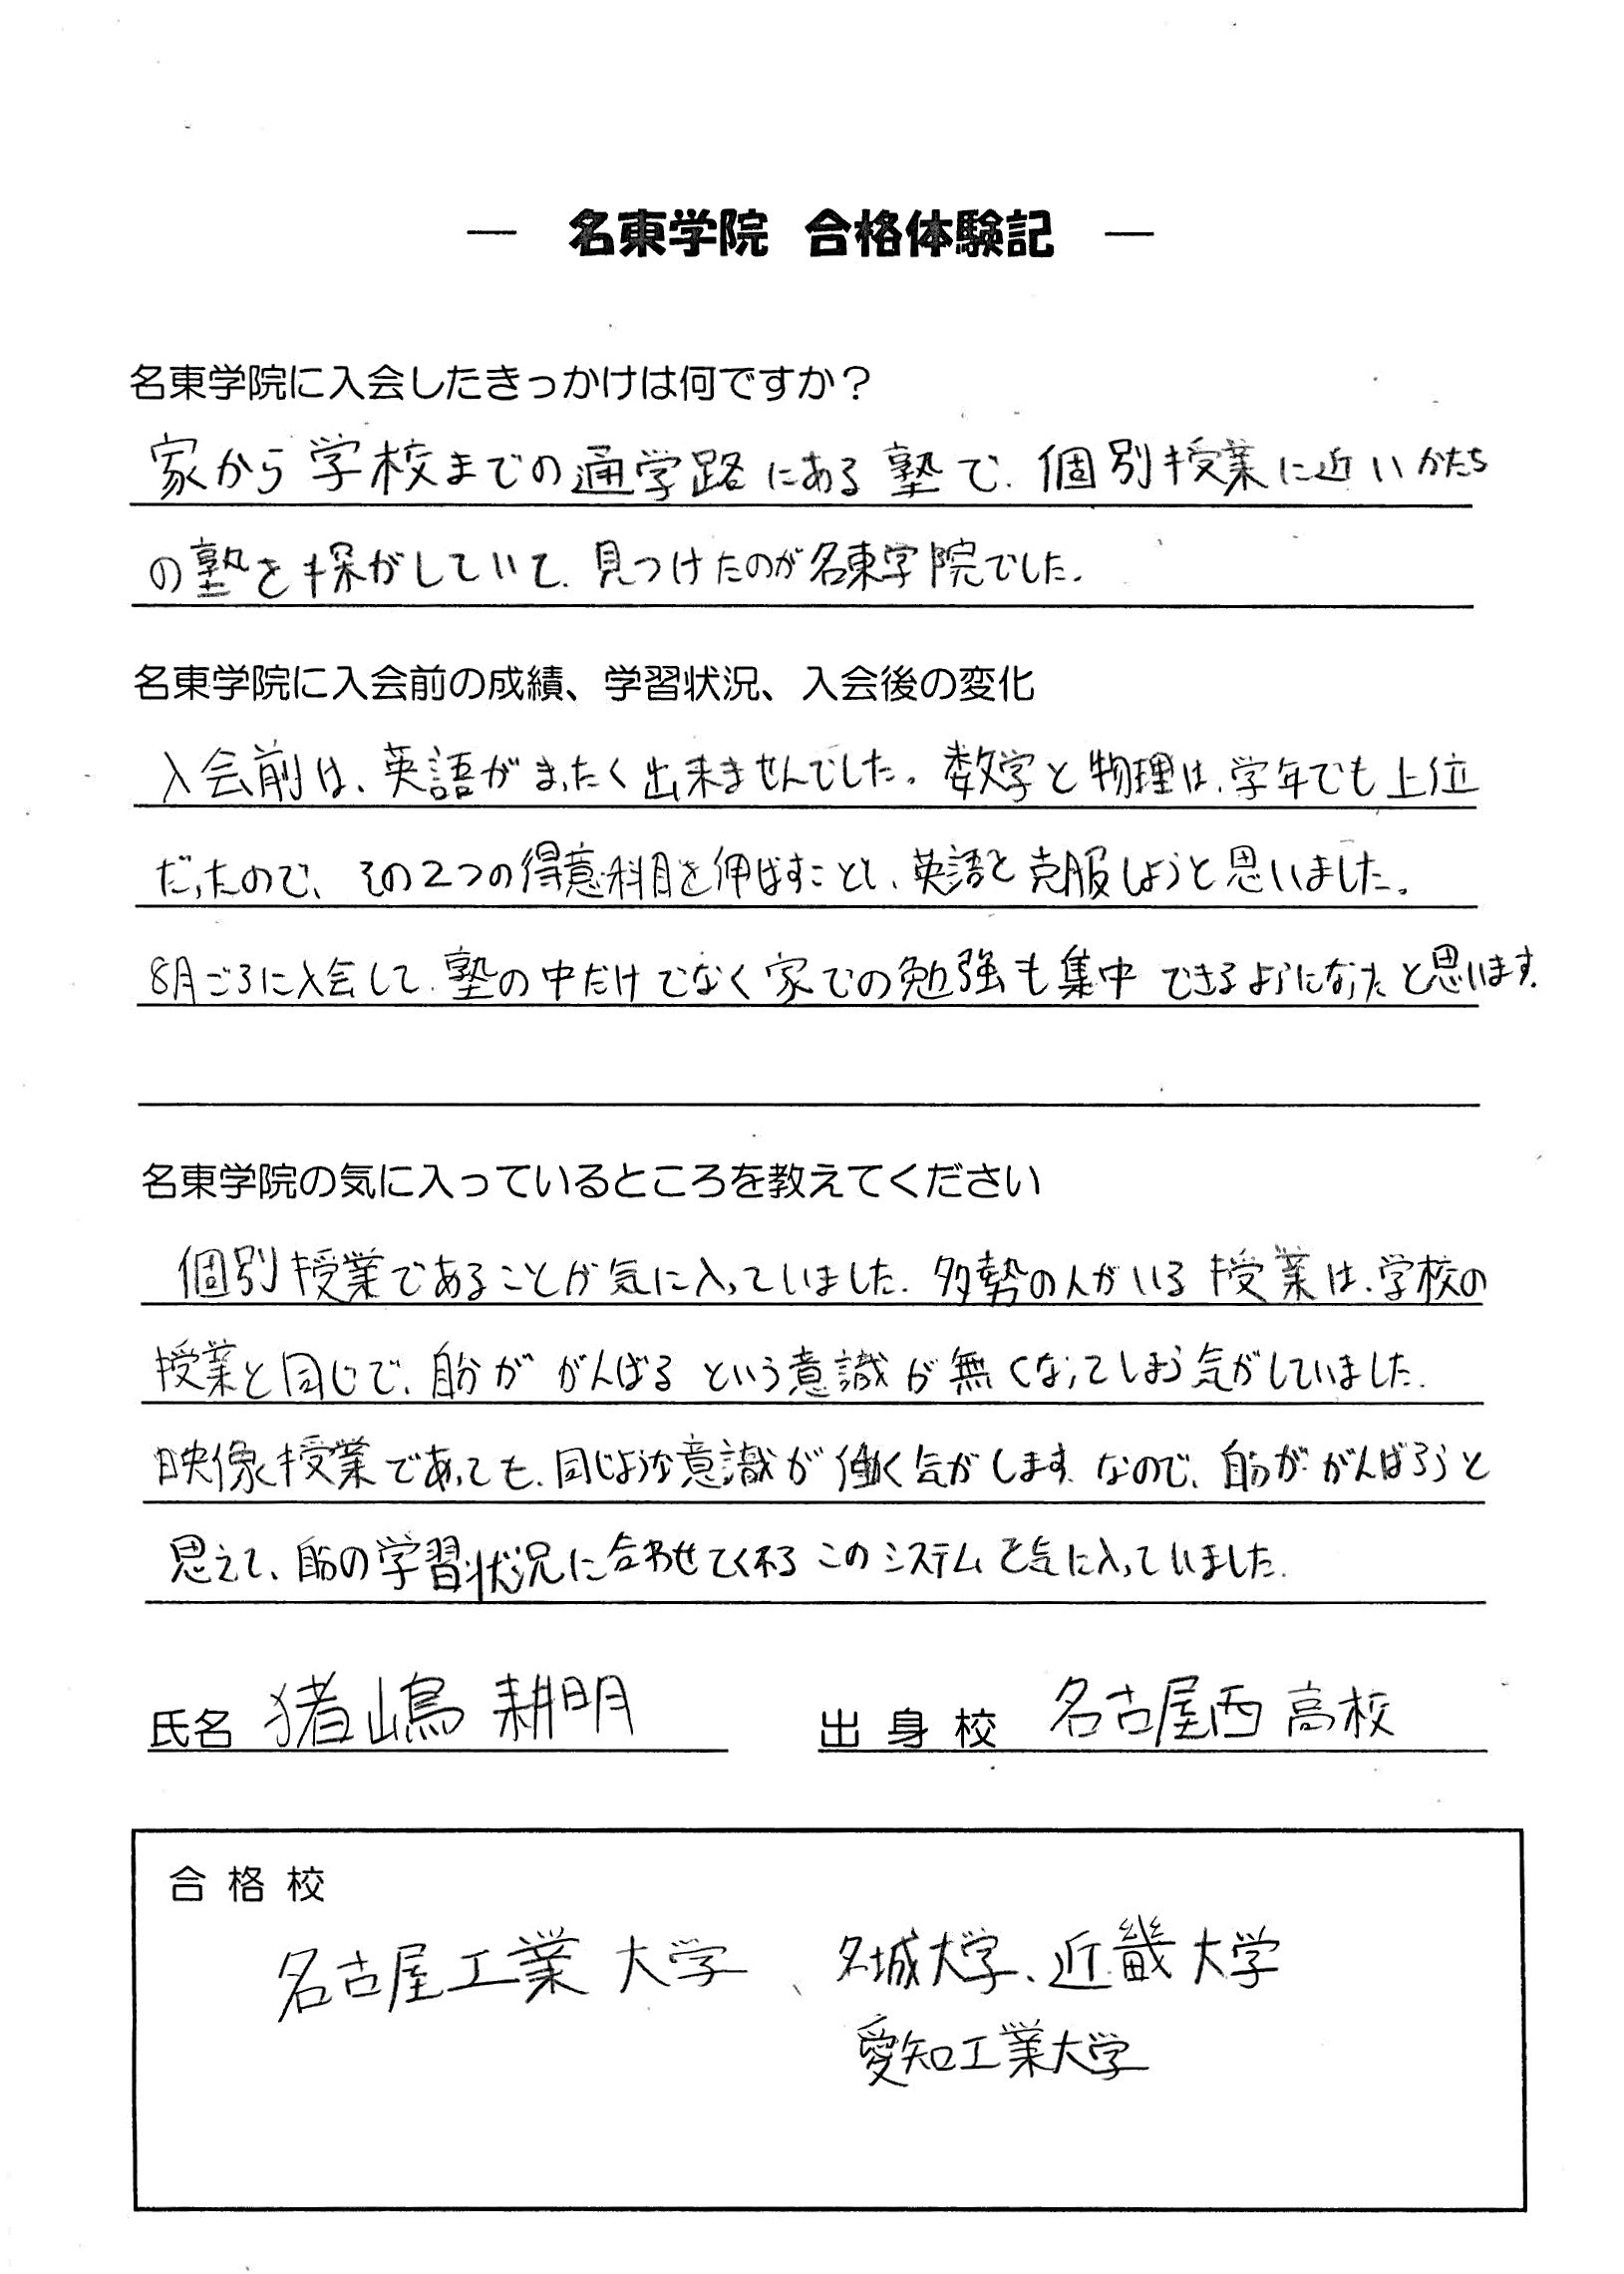 ― 名東学院 合格体験記 ―
名東学院に入会したきっかけは何ですか？
家から学校までの通学路にある塾で、個別授業に近いかたち
の塾を探がしていて、見つけたのが名東学院でした。
名東学院に入会前の成績、学習状況、入会後の変化
入会前は、英語がまったく出来ませんでした。数学と物理は、学年でも上位
だったので、その2つの得意科目を伸ばすことと、英語を克服しようと思いました。
8月ごろに入会して、塾の中だけでなく家での勉強も集中できるようになったと思います。
名東学院の気に入っているところを教えてください
個別授業であることが気に入っていました。多勢の人がいる授業は、学校の
授業と同じで、自分ががんばるという意識が無くなってしまう気がしていました。
映像授業であっても、同じような意識が働く気がします。なので、自分ががんばろうと
思えて、自分の学習状況に合わせてくれるこのシステムを気に入っていました。
氏名 猪嶋 耕明 出身校 名古屋西高校
合格校
名古屋工業大学、名城大学、近畿大学
愛知工業大学